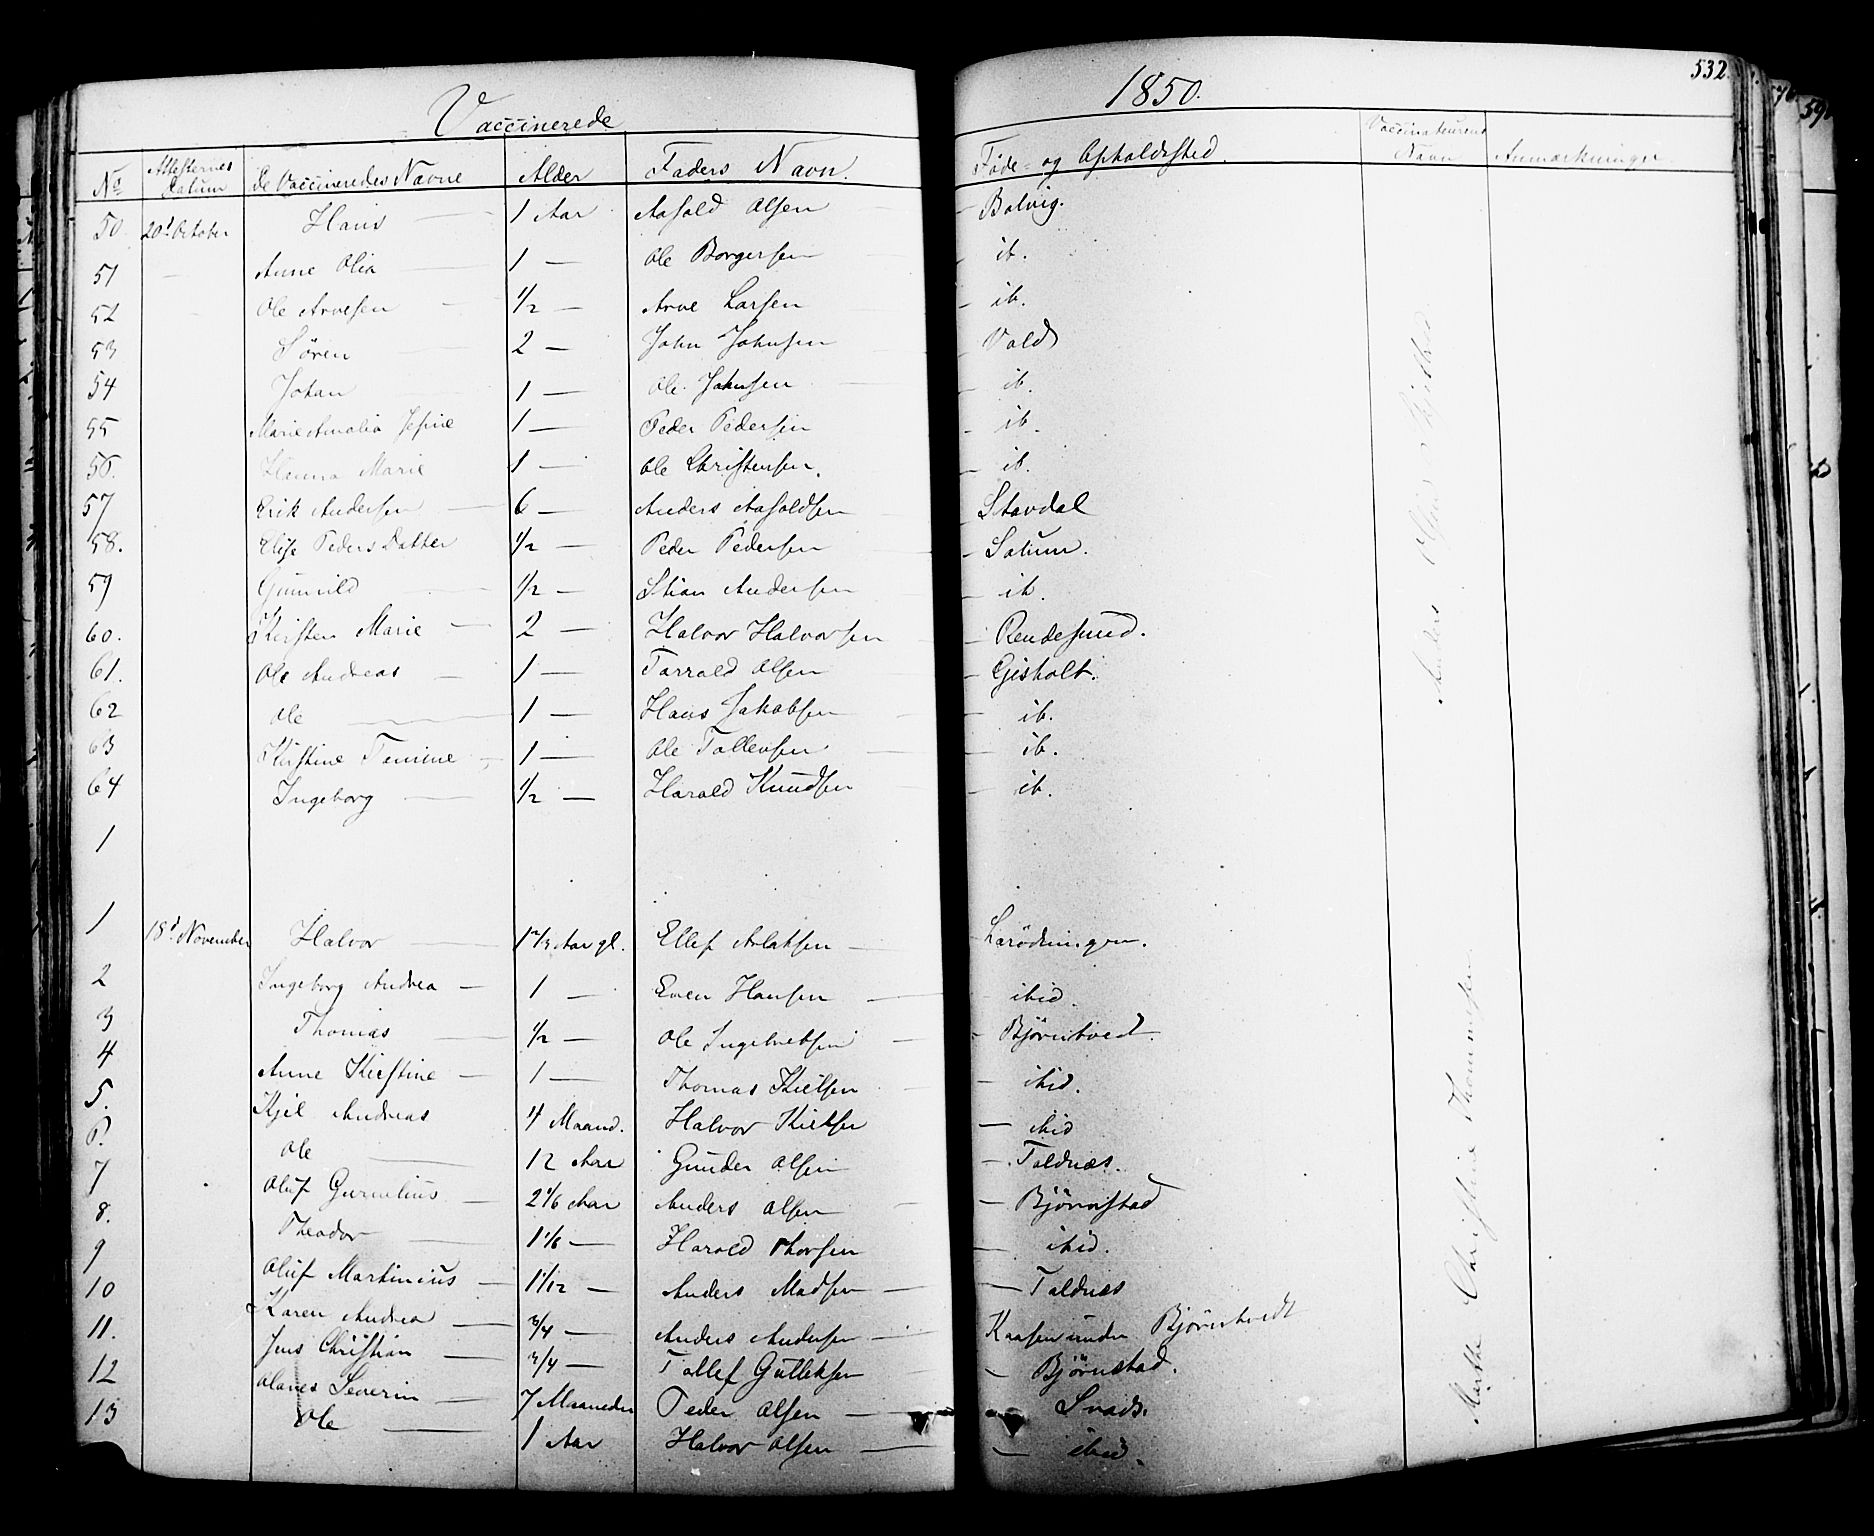 Vaccinerede 1850. 532.
No Attesternes Datum De Vaccineredes Navne Alder Faders Navn. Føde- og Opholdssted. Vaccinateurens Navn Anmærkninger
50. 20d October Hans 1 Aar Aasold Olsen Bolvig.
51 Anne Olia 1 — Ole Borgersen — ib.
52 Ole Arvesen 1/2 — Arve Larsen — ib.
53 Sören 2 — John Johnsen — Vold
54 Johan 1 — Ole Johnsen — ib.
55 Marie Amalia 1 — Peder Pedersen — ib.
56. Hanna Marie 1 — Ole Christensen. — ib.
57 Erik Andersen 6 — Anders Aasoldsen — Stavdal
58. Elise Peders Datter 1/2 — Peder Pedersen — Solum.
59 Gunnild 1/2 — Stian Andersen — ib.
60. Kirsten Marie 2 — Halvor Halvorsen — Rendesund.
61. Ole Andreas 1 — Torrald Olsen — Gisholt.
62 Ole 1 — Hans Jakobsen — ib.
63 Kirstine 1 — Ole Tollevsen — ib.
64 Ingeborg 1/2 — Harald Knudsen — ib.
Anders
1
1 18d November Halvor Aar gl. Ellef Aslaksen —
2 Ingeborg Andrea — 1 — Even Hansen — ibid.
3 Thomas 1/2 — Ole Ingebretsen — Björntvedt.
4 Anne Kirstine — 1 — Thomas Kielsen — ibid.
5. Kjel Andreas 4 Maaned. Halvor Kielsen — ibid
6. Ole 12 Aar Gunder Olsen — Toldnæs.
7 Oluf Gurnelius 2 1/6 Aar Anders Olsen — Björnstad
8. Theodor 1 1/6 — Harald Thorsen — ibid.
9 Oluf Martinius — 1 1/12 — Anders Madsen — Toldnæs
10 Karen Andrea — 3/4 — Anders Andersen — Kaasen under Björntvedt
11. Jens Christian — 3/4 — Tollef Gulleksen — Björnstad.
12 Olaves Severin — 7 Maaneder Peder Olsen —
13 Ole 1 Aar Halvor Olsen — ibid.
Marthe Christine Thommesen